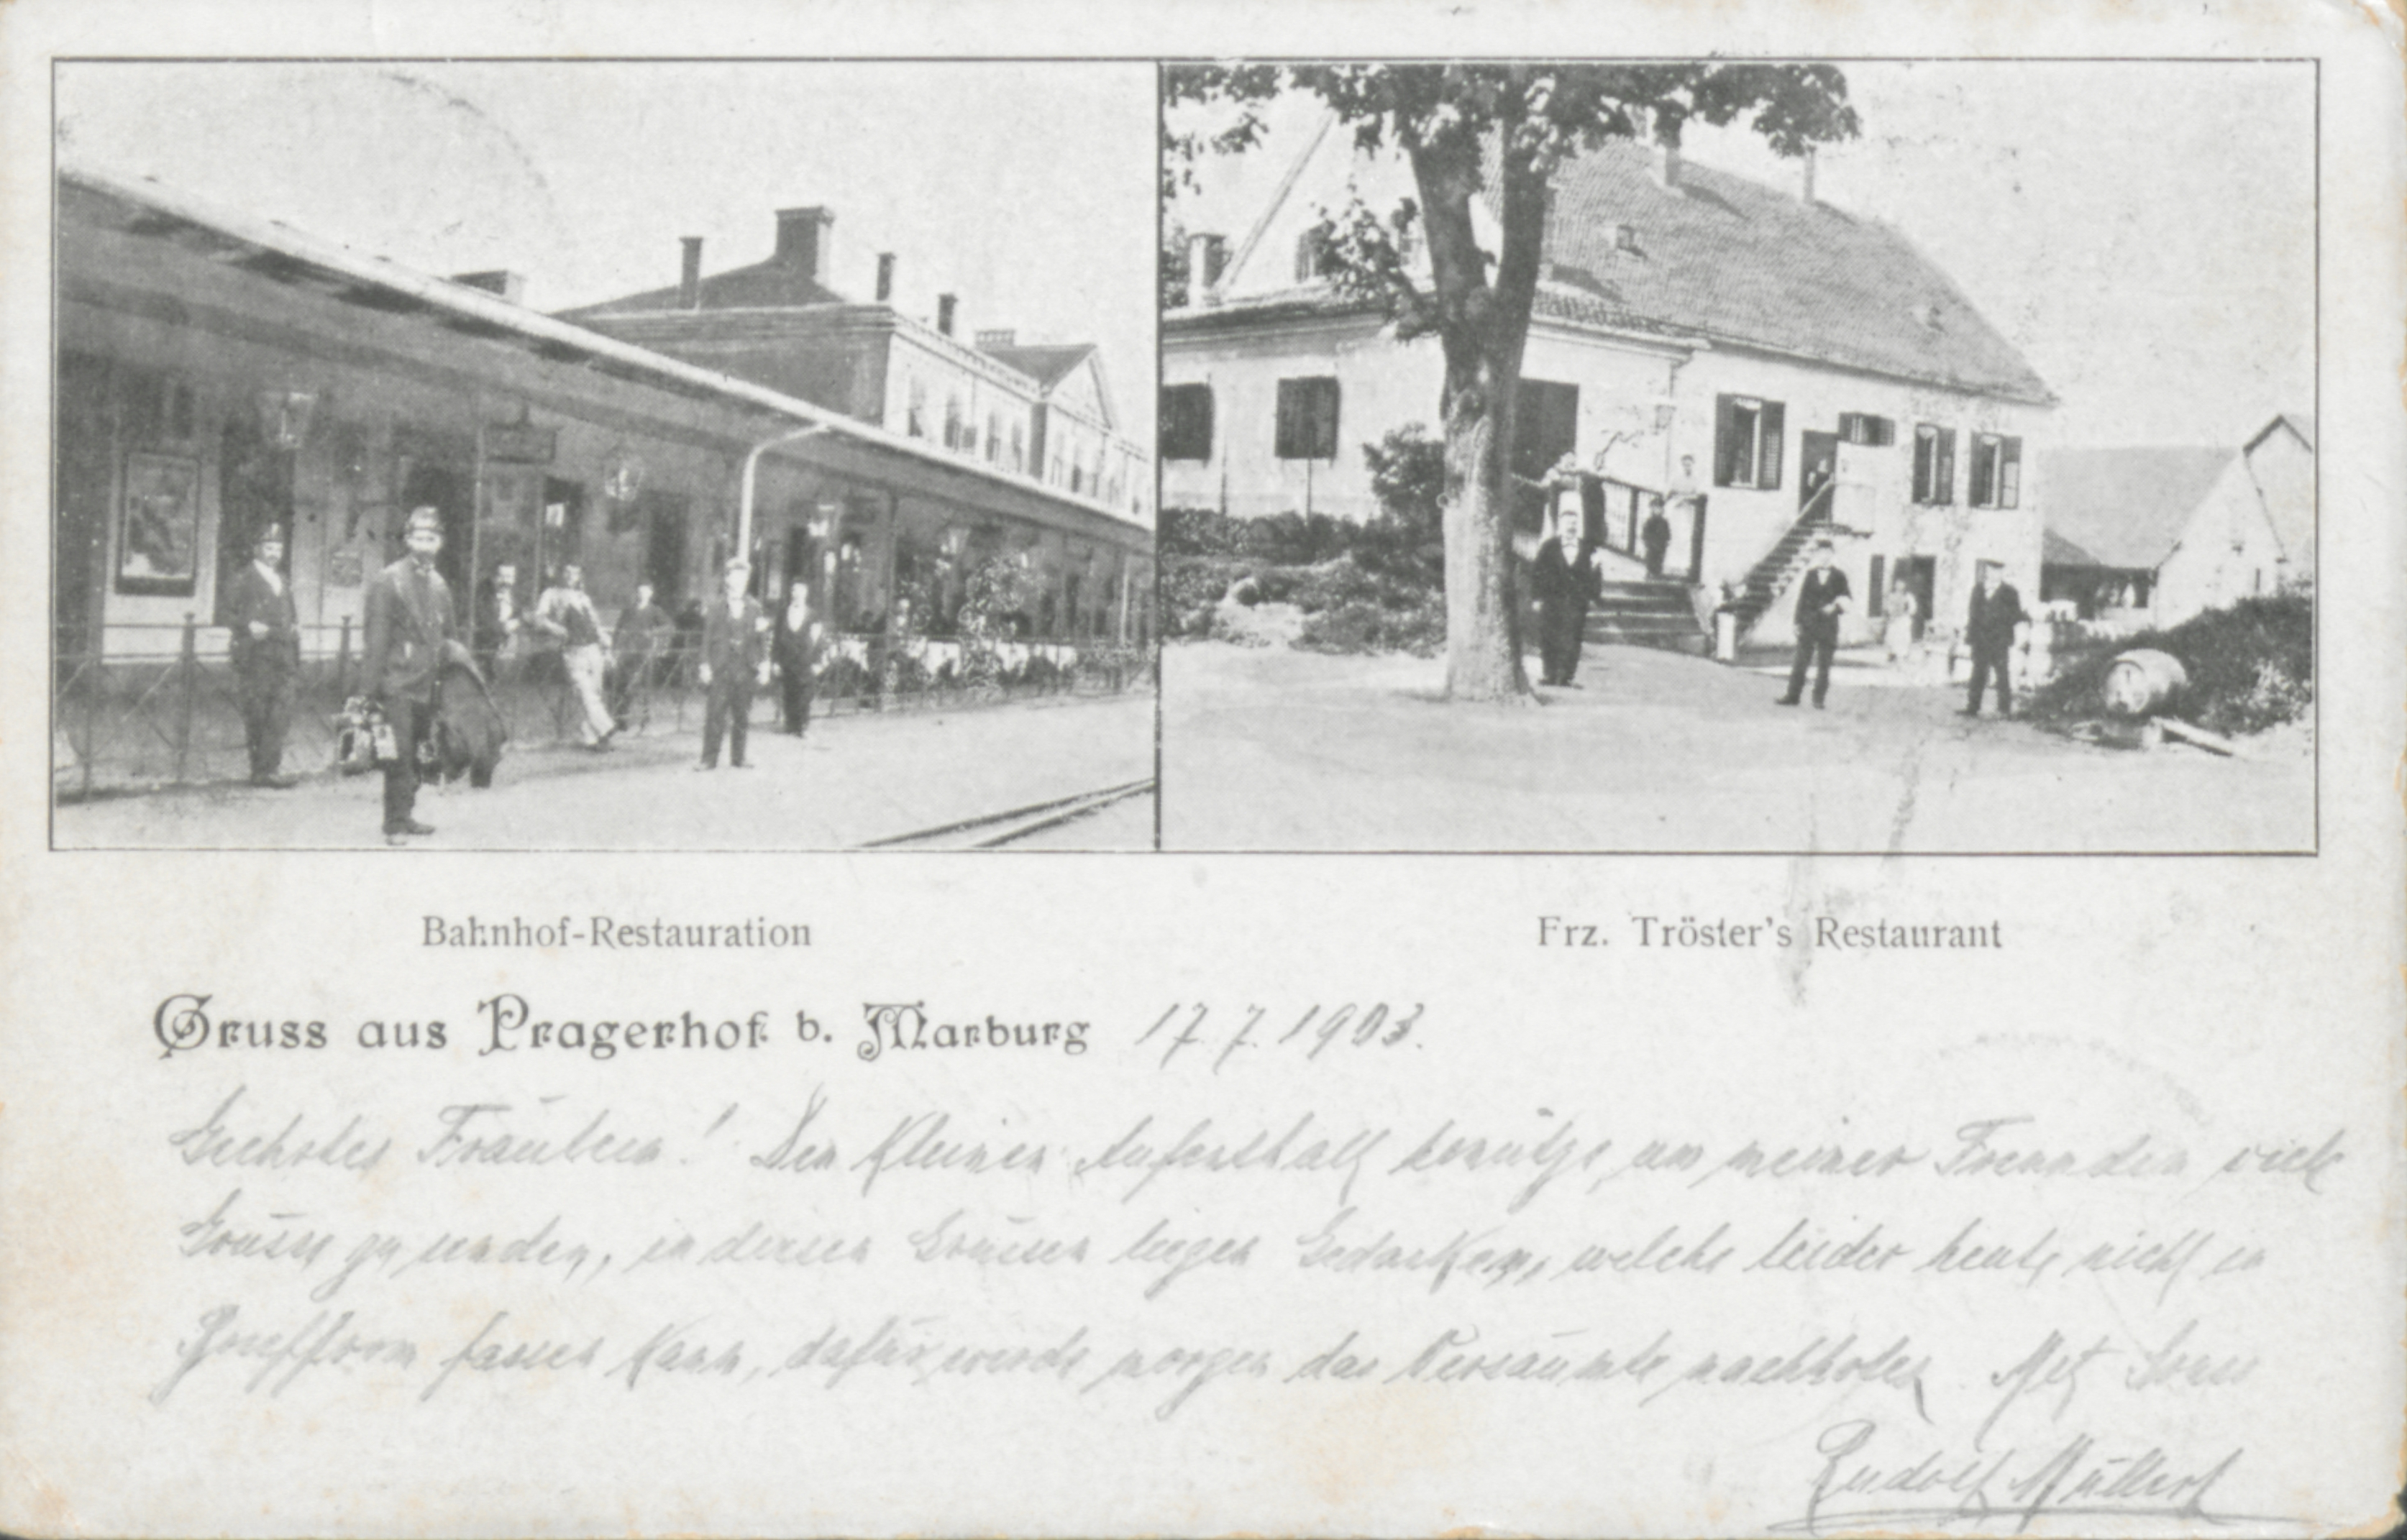 Bahnhof-Restauration
Frz. Tröster's Restaurant
Gruss aus Pragerhof b. Marburg 17. 7. 1903.
Geehrtes Fräulein! Den kleinen Aufenthalt benütze, um meiner Freundin viele
Grüsse zu senden, in diesen Grüssen liegen Gedanken, welche leider heute nicht in
fassen kann, dafür werde morgen das Versäumte nachholen. Mit Gruss
Rudolf